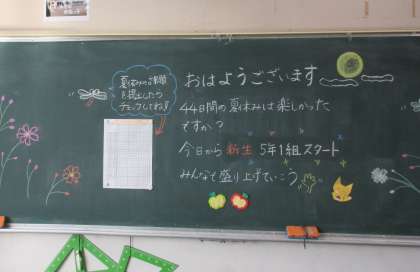 夏休みの課題
を提出したら
チェックしてね!
おはようございます
44日間の夏休みは楽しかった
ですか?
今日から新生 5年1組スタート
みんなで盛り上げていこう